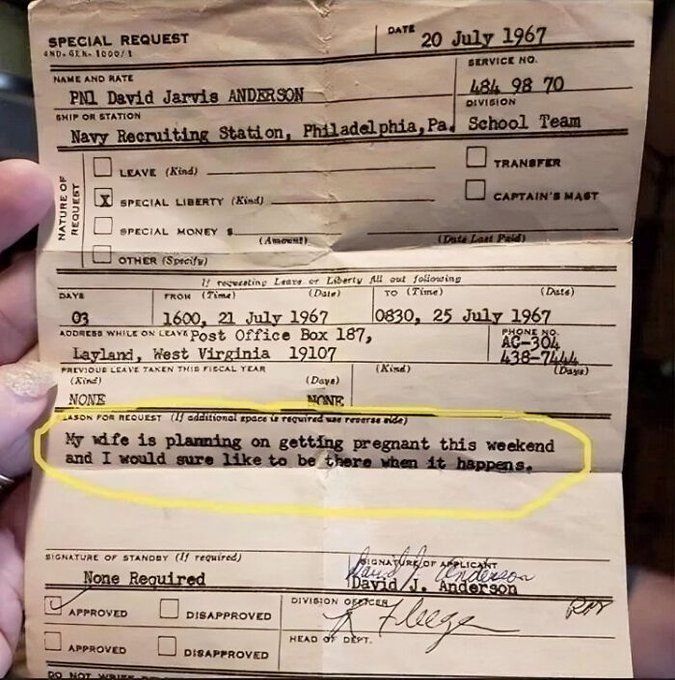 SPECIAL REQUEST
4ND-GEN-1000/1
DATE 20 July 1967
NAME AND RATE
PN1 David Jarvis ANDERSON
SERVICE NO.
484 98 70
SHIP OR STATION
Navy Recruiting Station, Philadelphia, Pa.
DIVISION
School Team
NATURE OF REQUEST
LEAVE (Kind)
X SPECIAL LIBERTY (Kind)
SPECIAL MONEY $ (Amount) (Date Last Paid)
OTHER (Specify)
TRANSFER
CAPTAIN'S MAST
If requesting Leave or Liberty fill out following
DAYS FROM (Time) (Date) TO (Time) (Date)
03 1600, 21 July 1967 0830, 25 July 1967
ADDRESS WHILE ON LEAVE Post Office Box 187,
Layland, West Virginia 19107
PHONE NO.
AC-304
438-7444
PREVIOUS LEAVE TAKEN THIS FISCAL YEAR
(Kind) (Days) (Kind) (Days)
NONE NONE
EASON FOR REQUEST (If additional space is required use reverse side)
My wife is planning on getting pregnant this weekend
and I would sure like to be there when it happens.
SIGNATURE OF STANDBY (If required)
None Required
SIGNATURE OF APPLICANT
David J. Anderson
David J. Anderson
APPROVED DISAPPROVED
DIVISION OFFICER
APPROVED DISAPPROVED
HEAD OF DEPT.
DO NOT WRITE